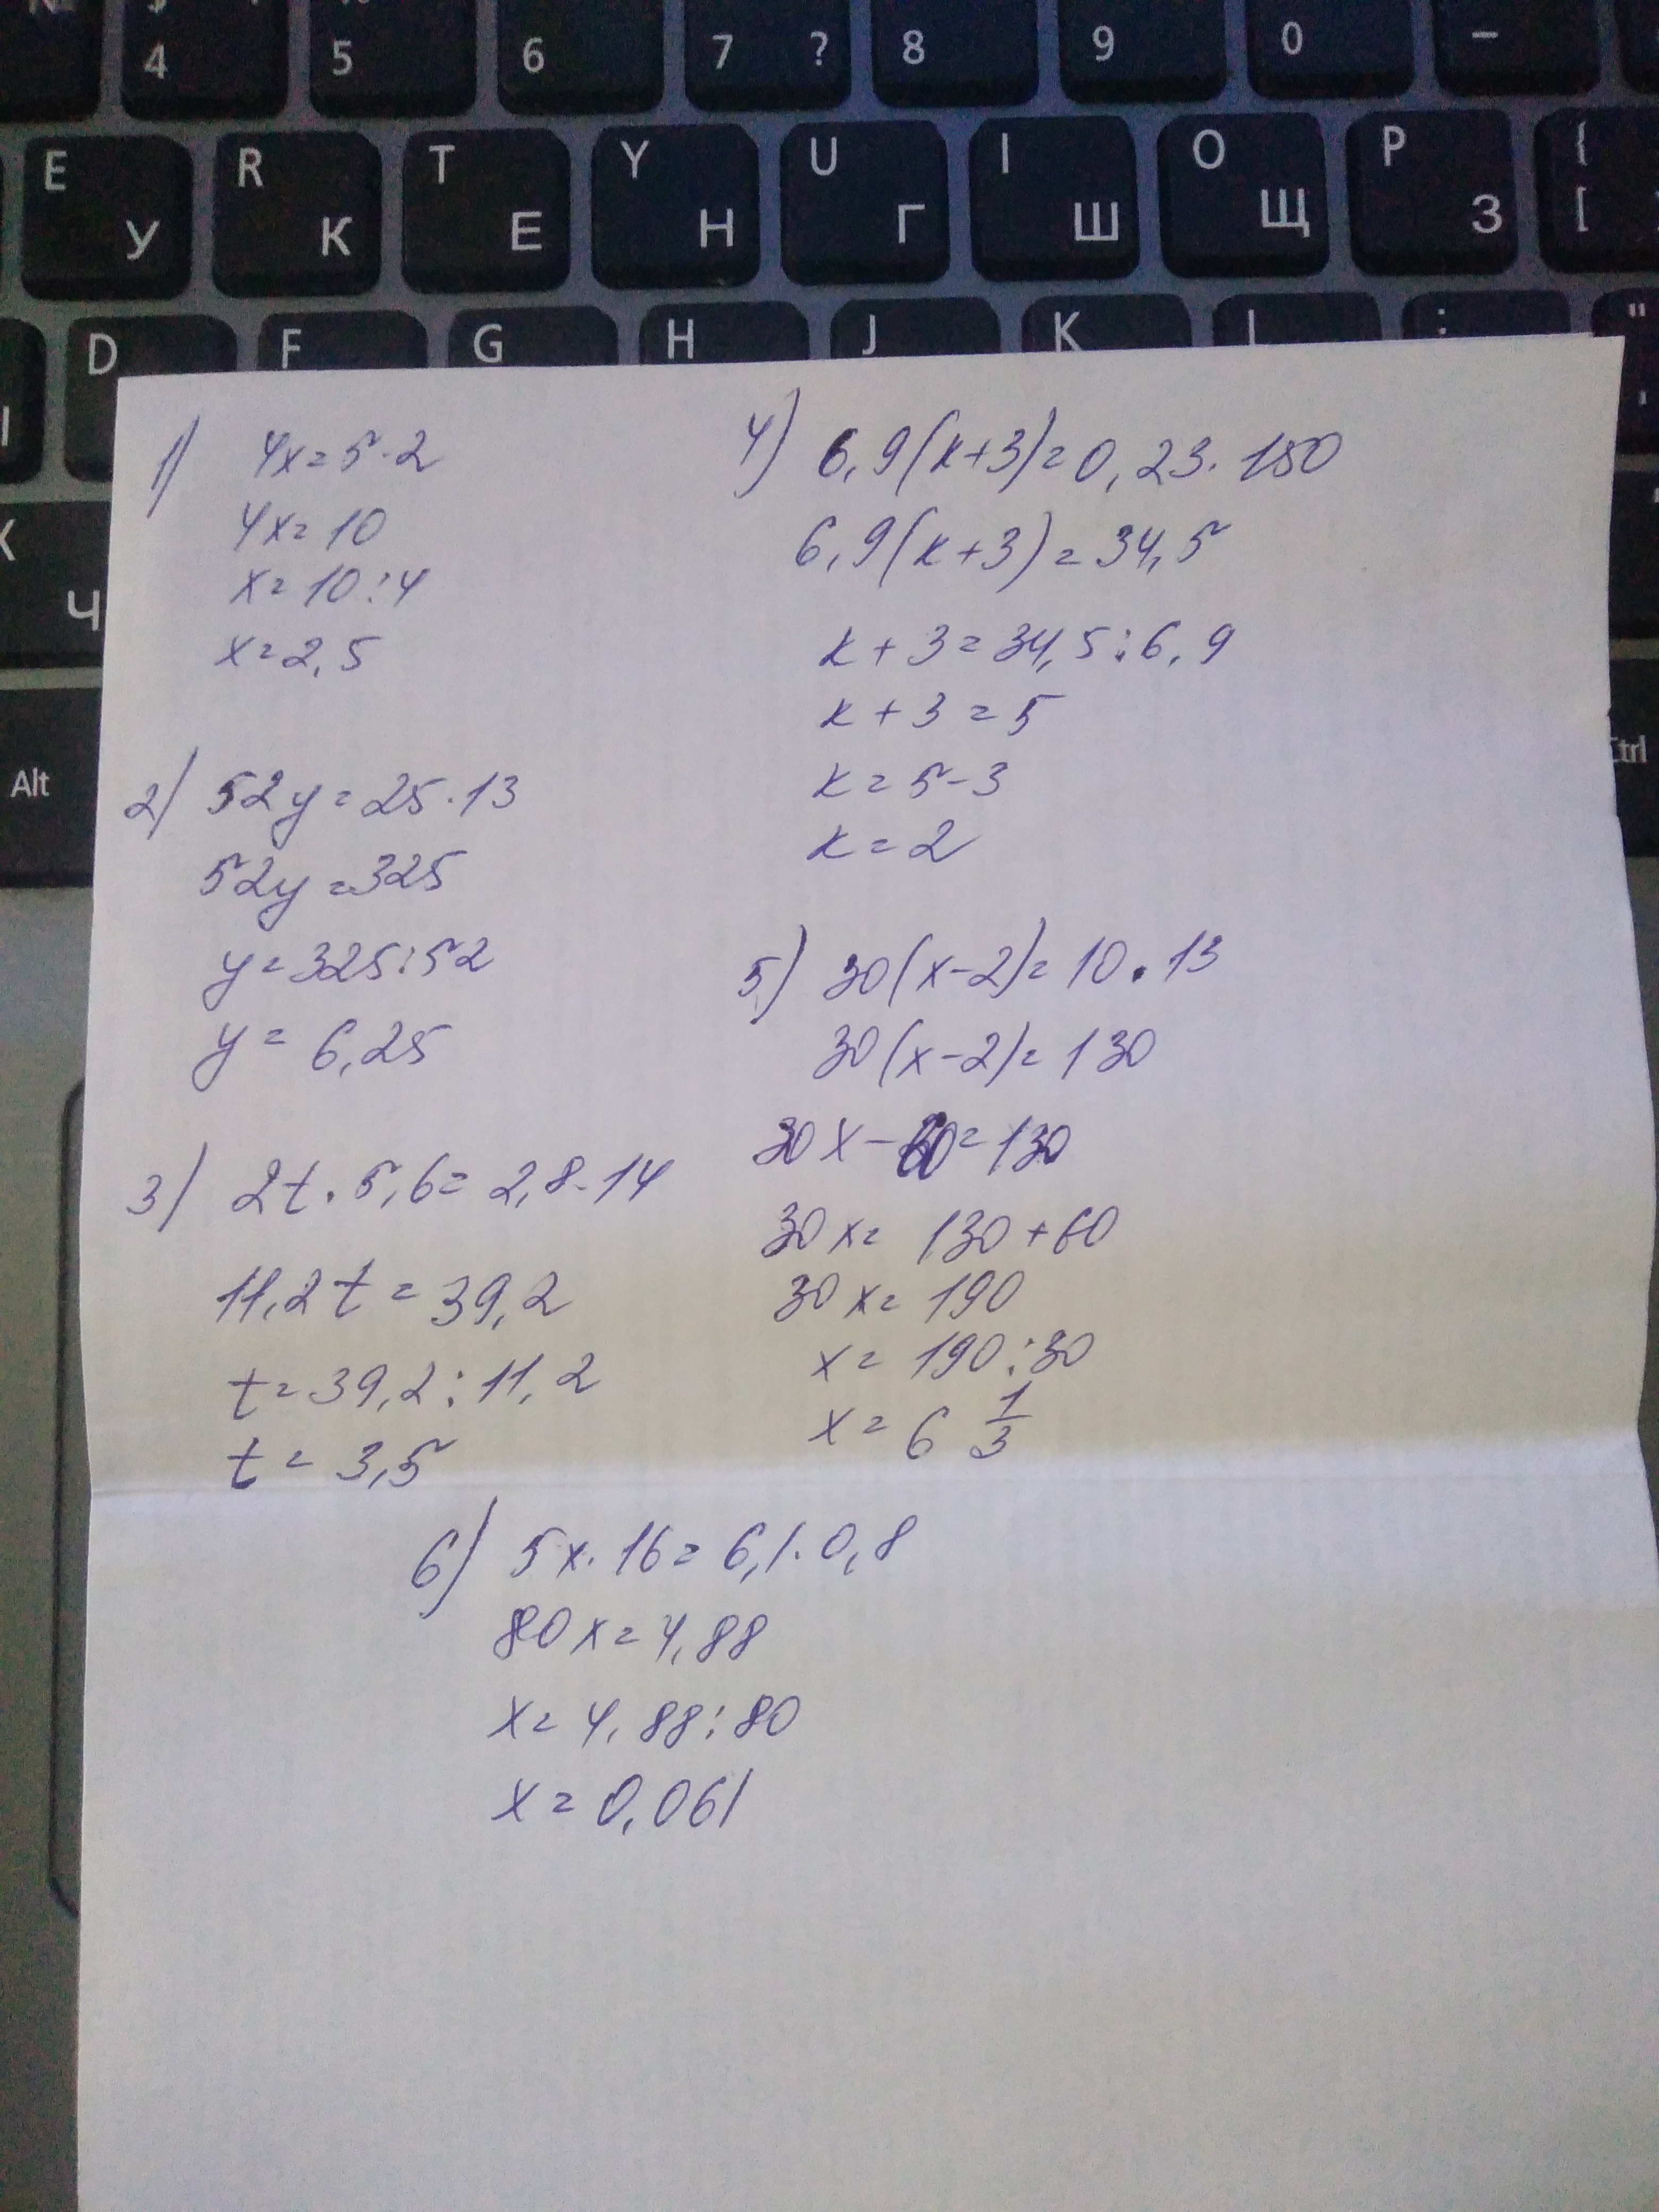 $ %
4 5 6 7 ? 8 9 0 –
E R T Y U I O P {
У К Е Н Г Ш Щ З [
D F G H J K L : "
Ч
Alt
Ctrl
1) 4x=5·2
4x=10
x=10:4
x=2,5
2) 52y=25·13
52y=325
y=325:52
y=6,25
3) 2t·5,6=2,8·14
11,2t=39,2
t=39,2:11,2
t=3,5
4) 6,9(k+3)=0,23·150
6,9(k+3)=34,5
k+3=34,5:6,9
k+3=5
k=5-3
k=2
5) 30(x-2)=10·13
30(x-2)=130
30x-60=130
30x=130+60
30x=190
x=190:30
x=6 1/3
6) 5x·16=6,1·0,8
80x=4,88
x=4,88:80
x=0,061